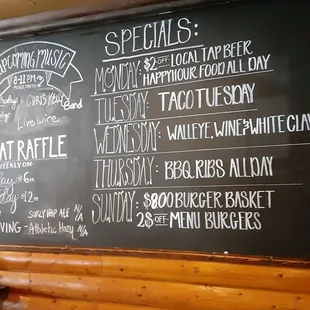 UPCOMING MUSIC
8-11 PM
CHRIS HOLLY
Band
Live Wire
AT RAFFLE
WEEKLY ON
6pm
12pm
SURLY HOP ALE N/A
VING - Athletic Hazy N/A
SPECIALS:
MONDAY: $2 OFF LOCAL TAP BEER
HAPPY HOUR FOOD ALL DAY
TUESDAY: TACO TUESDAY
WEDNESDAY: WALLEYE, WINE & WHITE CLAW
THURSDAY: BBQ RIBS ALL DAY
SUNDAY: $8.00 BURGER BASKET
2$ OFF MENU BURGERS